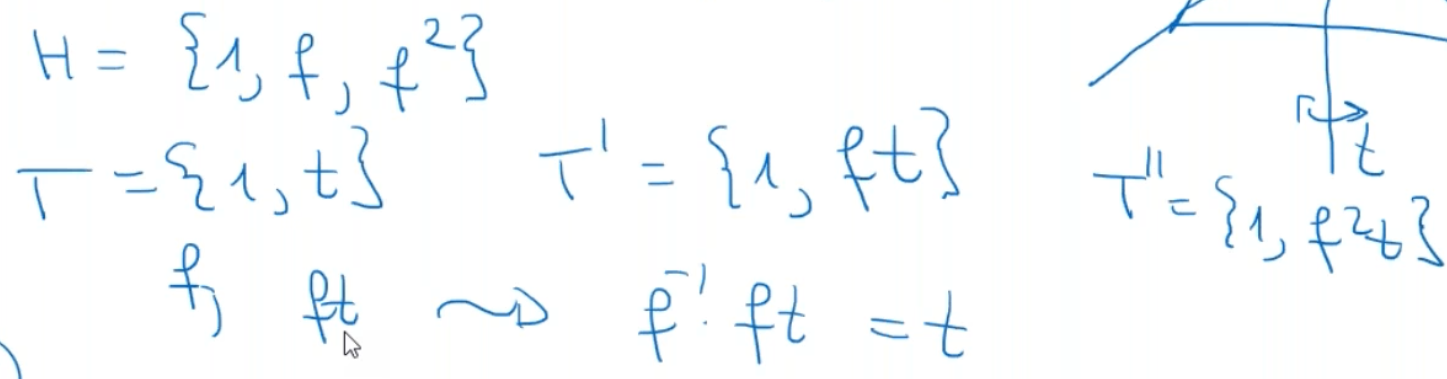 H = {1, f, f²}
T = {1, t} T' = {1, ft}
t
T'' = {1, f²t}
f, ft ⇝ f⁻¹·ft = t